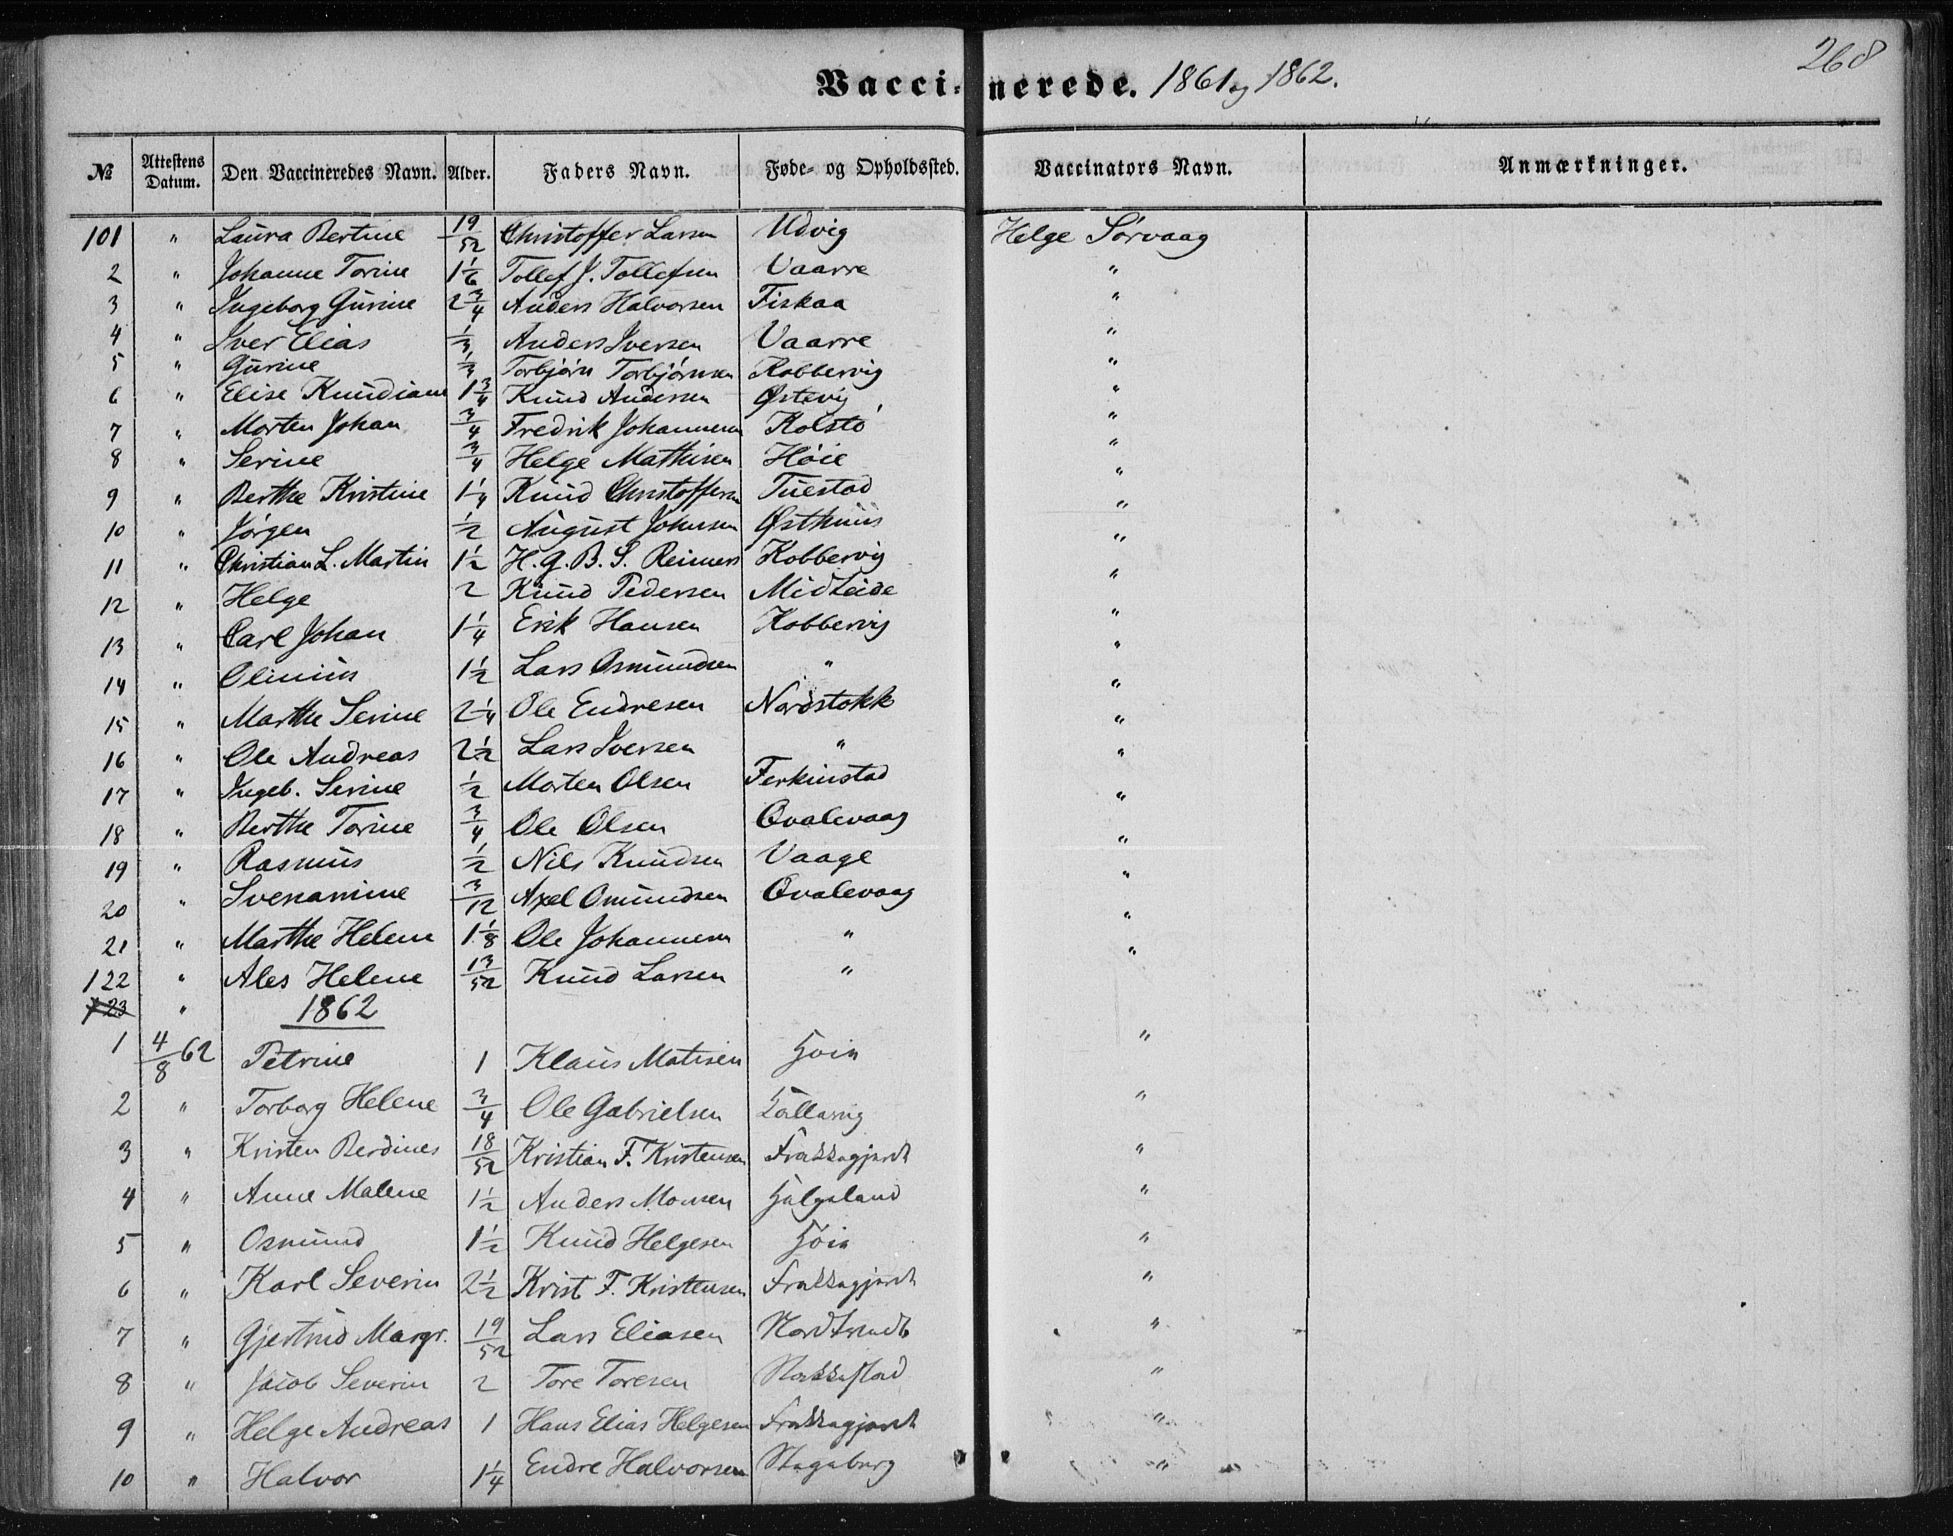 268
Vaccinerede. 1861 og 1862.
№ Attestens Datum. Den Vaccineredes Navn. Alder. Faders Navn. Føde- og Opholdssted. Vaccinators Navn. Anmærkninger.
101 " Laura Bertine 19/52 Christoffer Larsen Udvig Helge Sørvaag
2 " Johanne Torine 1 1/6 Tollef J. Tollefsen Vaarre "
3 " Ingeborg Gurine 2 3/4 Anders Halvorsen Fiskaa "
4 " Iver Elias 1/3 Anders Iversen Vaarre "
5 " Gurine 1/3 Torbjørn Torbjørnsen Kobbervig "
6 " Elise Knudiane 1 3/4 Knud Andersen Østevig "
7 " Morten Johan 3/4 Fredrik Johannesen Kolstø "
8 " Serine 3/4 Helge Mathisen Høie "
9 " Berthe Kristine 1 1/4 Knud Christoffersen Tuestad "
10 " Jørgen 1/2 August Johnsen Østhuus "
11 " Christian L. Martin 1 1/2 H. G. B. S. Reimers Kobbervig "
12 " Helge 2 Knud Pedersen Midteide "
13 " Carl Johan 1 1/4 Erik Hansen Kobbervig "
14 " Olinius 1 1/2 Lars Osmundsen " "
15 " Marthe Serine 2 1/4 Ole Endresen Nordstokk "
16 " Ole Andreas 2 1/2 Lars Iversen " "
17 " Ingeb. Serine 1/2 Morten Olsen Ferkinstad "
18 " Berthe Torine 3/4 Ole Olsen Qvalevaag "
19 " Rasmus 1/2 Nils Knudsen Vaage "
20 " Svenamine 3/12 Axel Omundsen Qvalevaag "
21 " Marthe Helene 1 1/8 Ole Johannesen " "
122 " Ales Helene 13/52 Knud Larsen " "
123 " 1862
1 4/8 62 Petrine 1 Klaus Matisen Høie "
2 " Torborg Helene 3/4 Ole Gabrielsen "
3 " Kristen Berdines 18/52 Kristian F. Kristensen Frakkagjerdt "
4 " Anne Malene 1 1/2 Anders Monsen Helgeland "
5 " Osmund 1 1/2 Knud Helgesen Høie "
6 " Karl Severin 2 1/2 Krist F. Kristensen Frakkagjerdt "
7 " Gjertrud Margr. 19/52 Lars Eliasen "
8 " Jacob Severin 2 Tore Toresen Stakkestad "
9 " Helge Andreas 1 Hans Elias Helgesen Frakkagjerdt "
10 " Halvor 1 1/4 Endre Halvorsen Stegaberg "